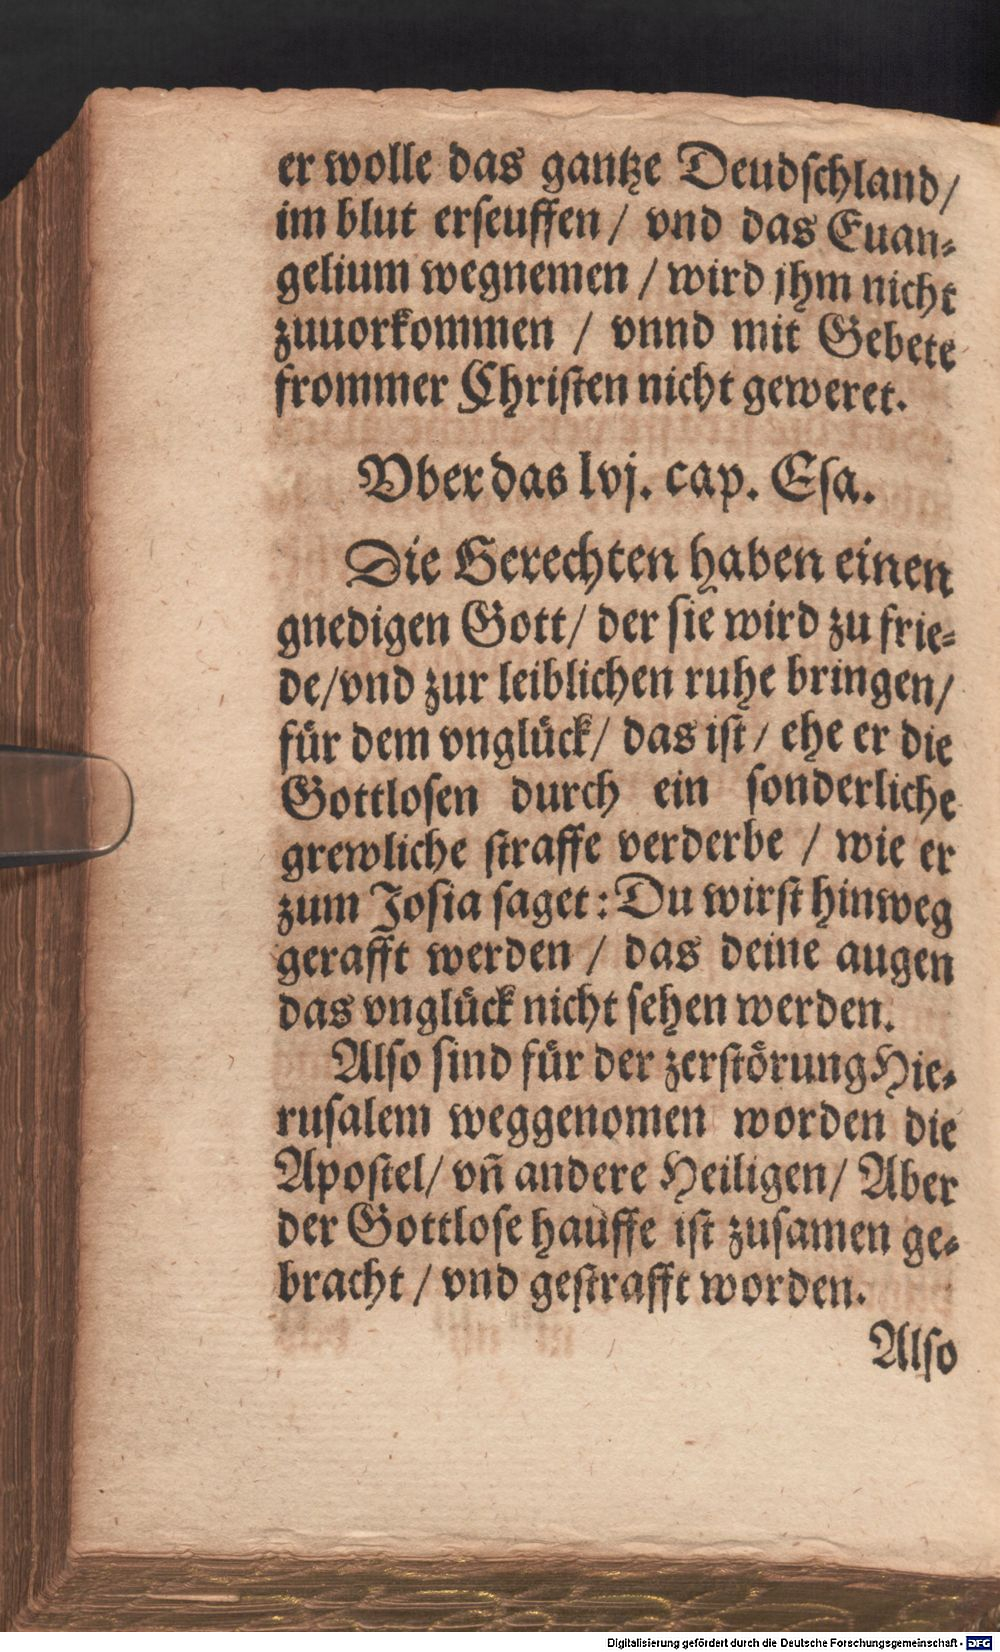 er wolle das gantze Deudschland/
im blut erseuffen / vnd das Euan-
gelium wegnemen / wird jhm nicht
zuuorkommen / vnnd mit Gebete
frommer Christen nicht geweret.
Vber das lvj. cap. Esa.
Die Gerechten haben einen
gnedigen Gott/ der sie wird zu frie-
de/vnd zur leiblichen ruhe bringen/
für dem vnglück/ das ist/ ehe er die
Gottlosen durch ein sonderliche
grewliche straffe verderbe / wie er
zum Josia saget: Du wirst hinweg
gerafft werden / das deine augen
das vnglück nicht sehen werden.
Also sind für der zerstörung Hie-
rusalem weggenomen worden die
Apostel/ vñ andere Heiligen/ Aber
der Gottlose hauffe ist zusamen ge-
bracht / vnd gestrafft worden.
Also
Digitalisierung gefördert durch die Deutsche Forschungsgemeinschaft - DFG